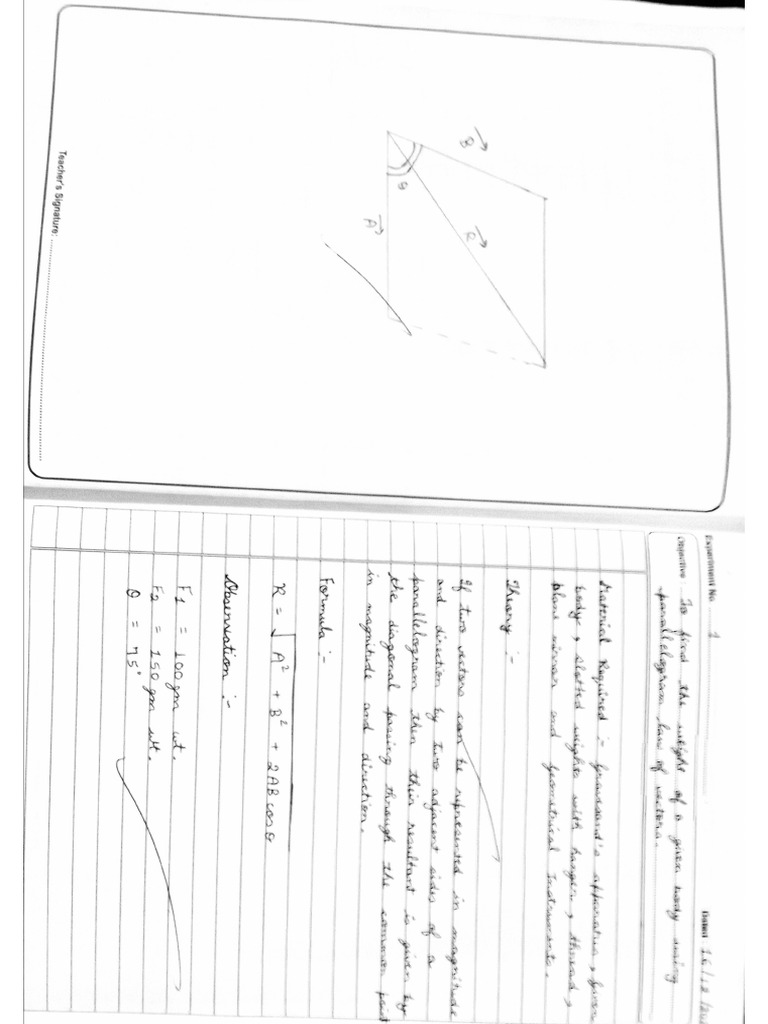 B
R
θ
A
Teacher's Signature:
Experiment No. 1
Dated 16/12/
Objective To find the weight of a given body using
parallelogram law of vectors.
Material Required :- Gravesand's apparatus, given
body, slotted weights with hanger, thread,
plane mirror and geometrical Instruments.
Theory :-
If two vectors can be represented in magnitude
and direction by two adjacent sides of a
parallelogram then their resultant is given by
the diagonal passing through the common point
in magnitude and direction.
Formula :-
R = √A² + B² + 2AB cos θ
Observation :-
F1 = 100 gm wt.
F2 = 150 gm wt.
θ = 75°